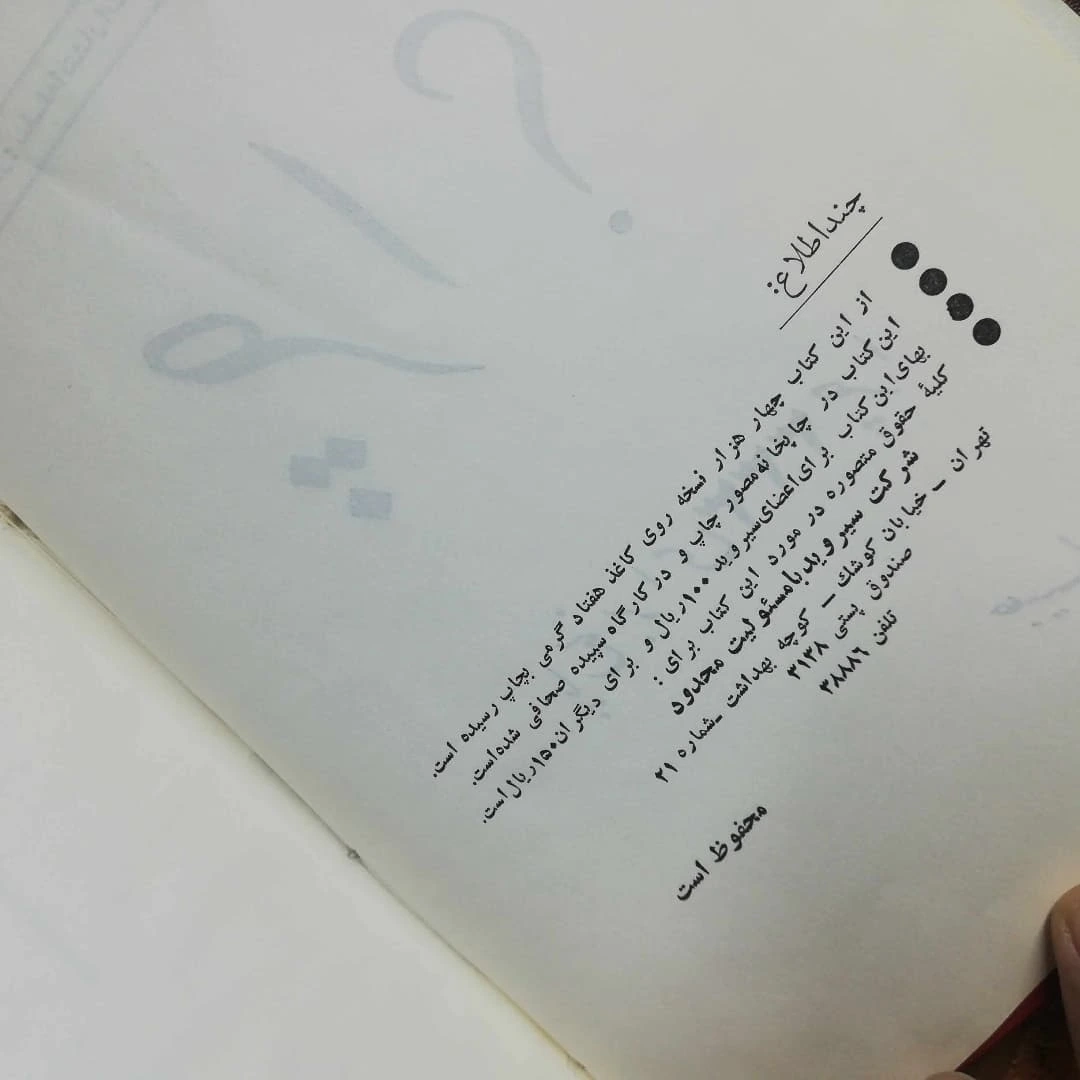 چند اطلاع:
از این کتاب چهار هزار نسخه روی کاغذ هفتاد گرمی بچاپ رسیده است.
این کتاب در چاپخانه مصور چاپ و در کارگاه سپیده صحافی شده‌است.
بهای این کتاب برای اعضای سیروید ۱۰۰ ریال و برای دیگران ۱۵۰ ریال است.
کلیهٔ حقوق متصوره در مورد این کتاب برای:
شرکت سیروید بامسئولیت محدود
تهران ـ خیابان کوشك ـ کوچه بهداشت ـ شماره ۲۱
صندوق پستی ۳۱۳۸
تلفن ۳۸۸۸۶
محفوظ است